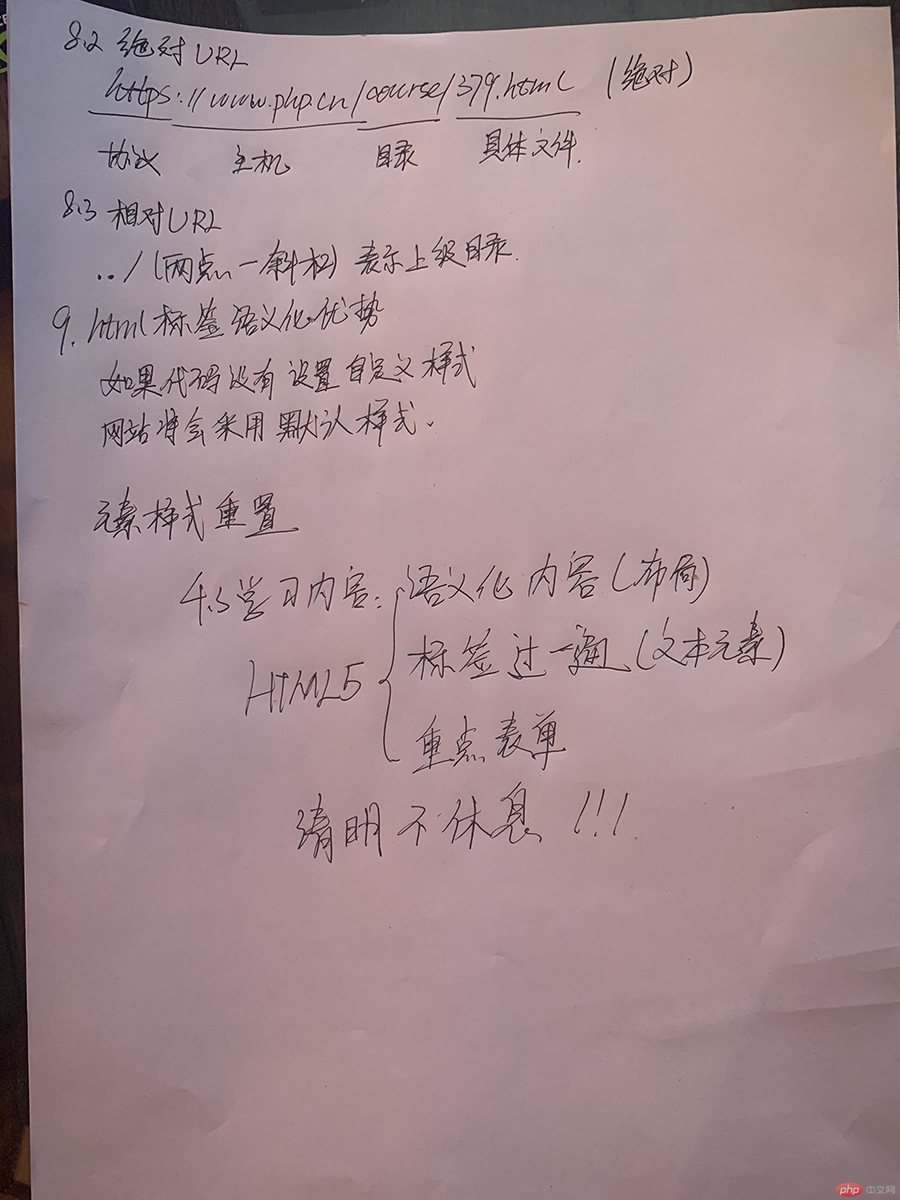 8.2 绝对URL
https://www.php.cn/course/379.html (绝对)
协议 主机 目录 具体文件.
8.3 相对URL
../(两点一斜杠) 表示上级目录.
9. html标签语义化优势
如果代码没有设置自定义样式
网站将会采用默认样式.
元素样式重置
4.3学习内容: 语义化内容(布局)
HTML5 标签过一遍(文本元素)
重点表单
清明不休息!!!
php 中文网